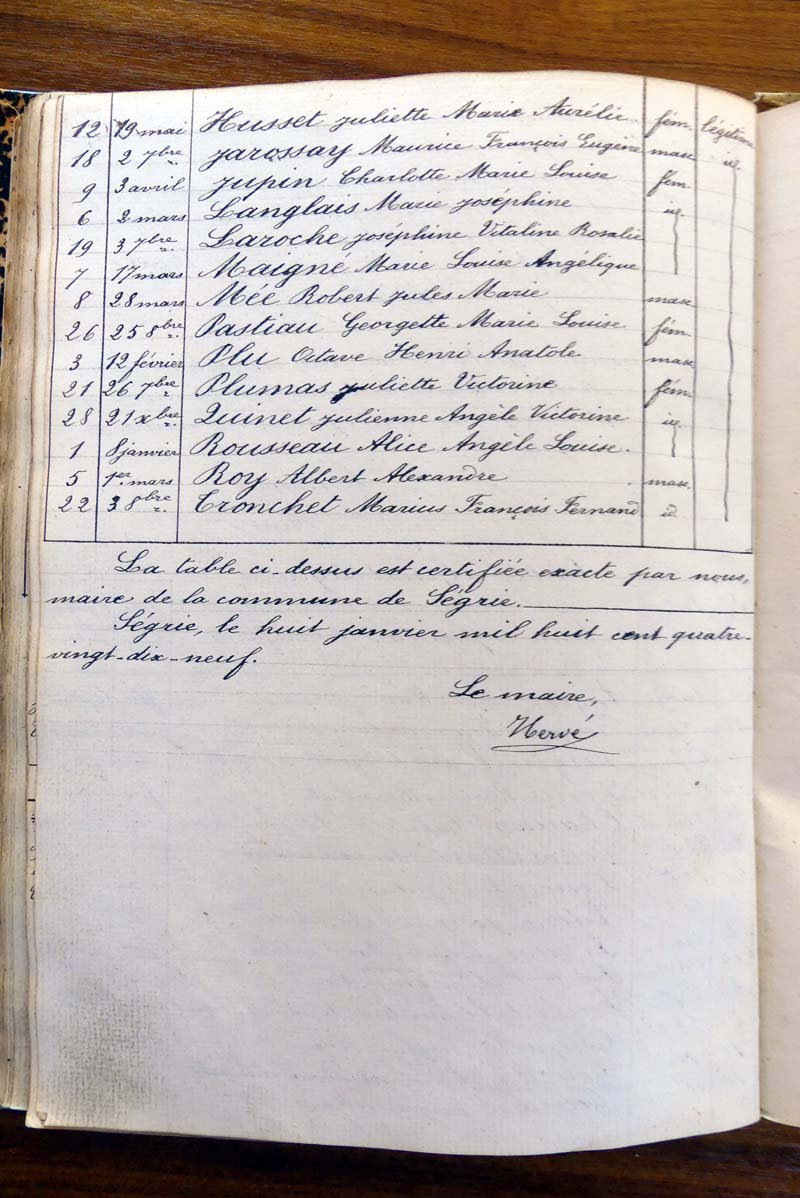 12 19 mai Husset Juliette Marie Aurélie fém. légitime
18 2 7bre Jarossay Maurice François Eugène masc. id.
9 3 avril Jupin Charlotte Marie Louise fém.
6 2 mars Langlais Marie Joséphine id.
19 3 7bre Laroche Joséphine Vitaline Rosalie
7 17 mars Maigné Marie Louise Angélique
8 28 mars Mée Robert Jules Marie masc.
26 25 8bre Pastiau Georgette Marie Louise fém.
3 12 février Plu Octave Henri Anatole masc.
21 26 7bre Plumas Juliette Victorine fém.
28 21 xbre Quinet Julienne Angèle Victorine id.
1 8 janvier Rousseau Alice Angèle Louise.
5 1er mars Roy Albert Alexandre masc.
22 3 8bre Tronchet Marius François Fernand id.
La table ci-dessus est certifiée exacte par nous,
maire de la commune de Ségrie.
Ségrie, le huit janvier mil huit cent quatre-
vingt-dix-neuf.
Le maire,
Hervé